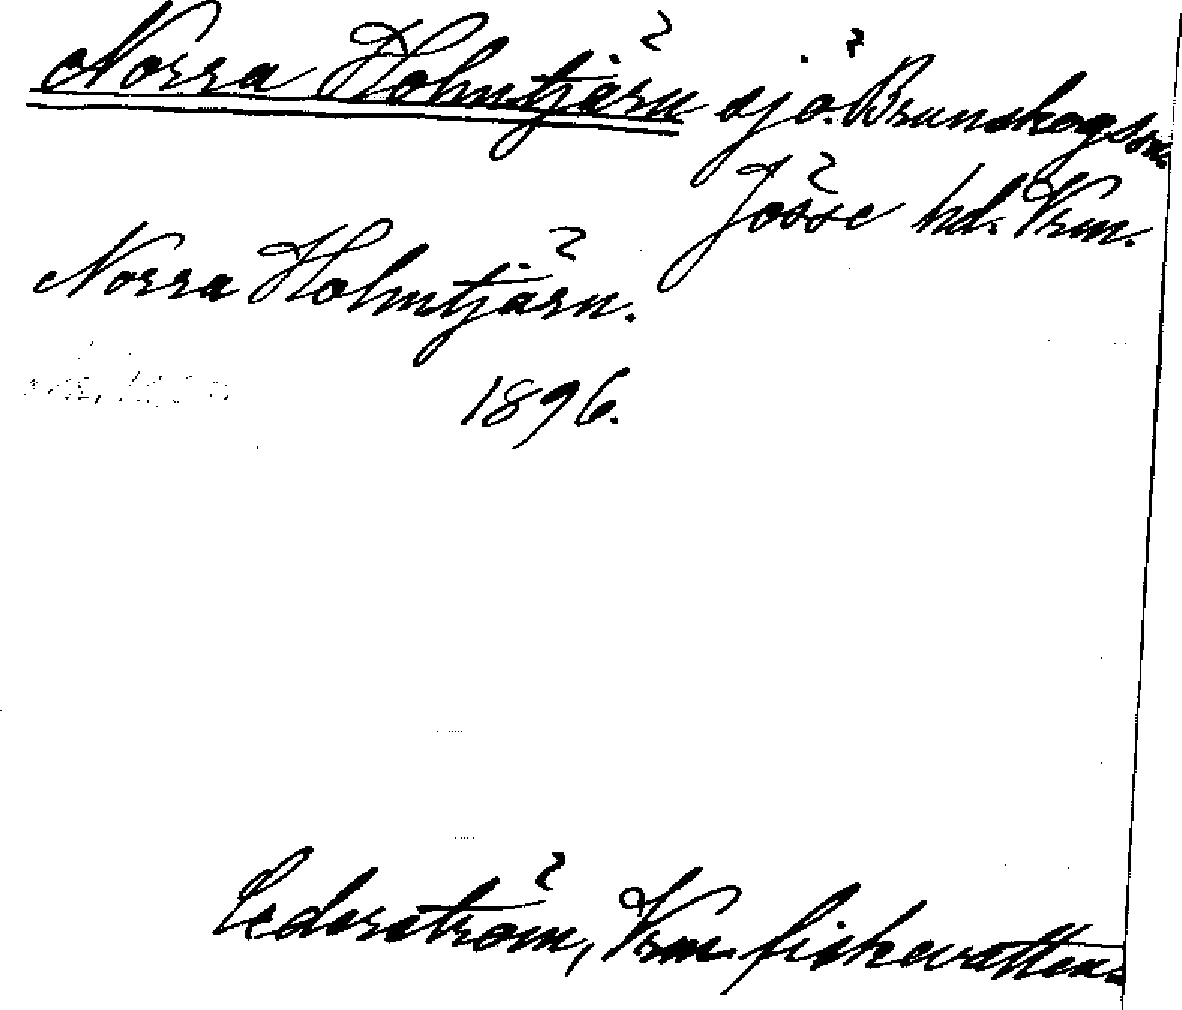 Norra Holmtjärn sjö. Brunskogs sn.
Jösse hd. Vrm.
Norra Holmtjärn.
1896.
Cederström, Vrm. fiskevatten.